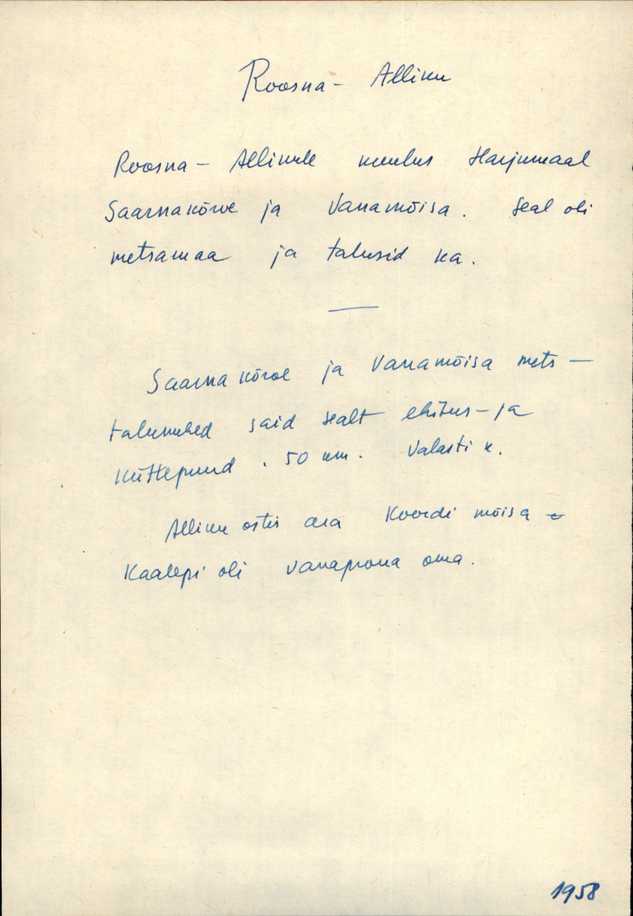 Roosna - Alliku
Roosna - Allikule kuulus Harjumaal
Saarnakõrve ja Vanamõisa. Seal oli
metsamaa ja talusid ka.
Saarnakõrve ja Vanamõisa mets-
talumehed said sealt ehitus- ja
küttepuud. 50 km. Valasti k.
Alliku ostis ära Koordi mõisa -
Kaalepi oli vanaproua oma.
1958